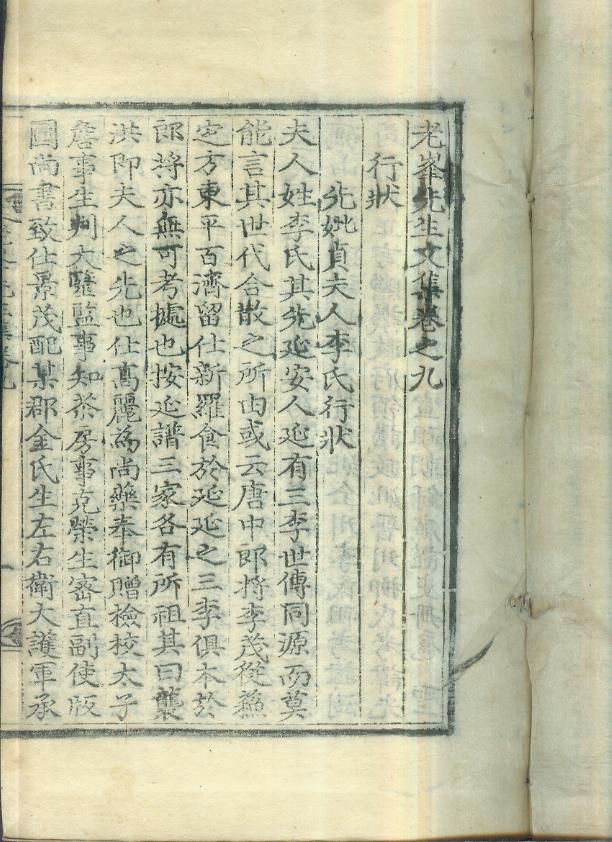 老峯先生文集卷之九
行狀
先妣貞夫人李氏行狀
夫人姓李氏其先延安人延有三李世傳同源而莫
能言其世代合散之所由或云唐中郎將李茂從蘇
定方東平百濟留仕新羅食於延延之三李俱本於
郎將亦無可考據也按延譜三家各有所祖其曰襲
洪即夫人之先也仕高麗爲尚藥奉御贈檢校太子
詹事生判大醫監事知茶房事克榮生密直副使版
圖尚書致仕景茂配某郡金氏生左右衛大護軍承